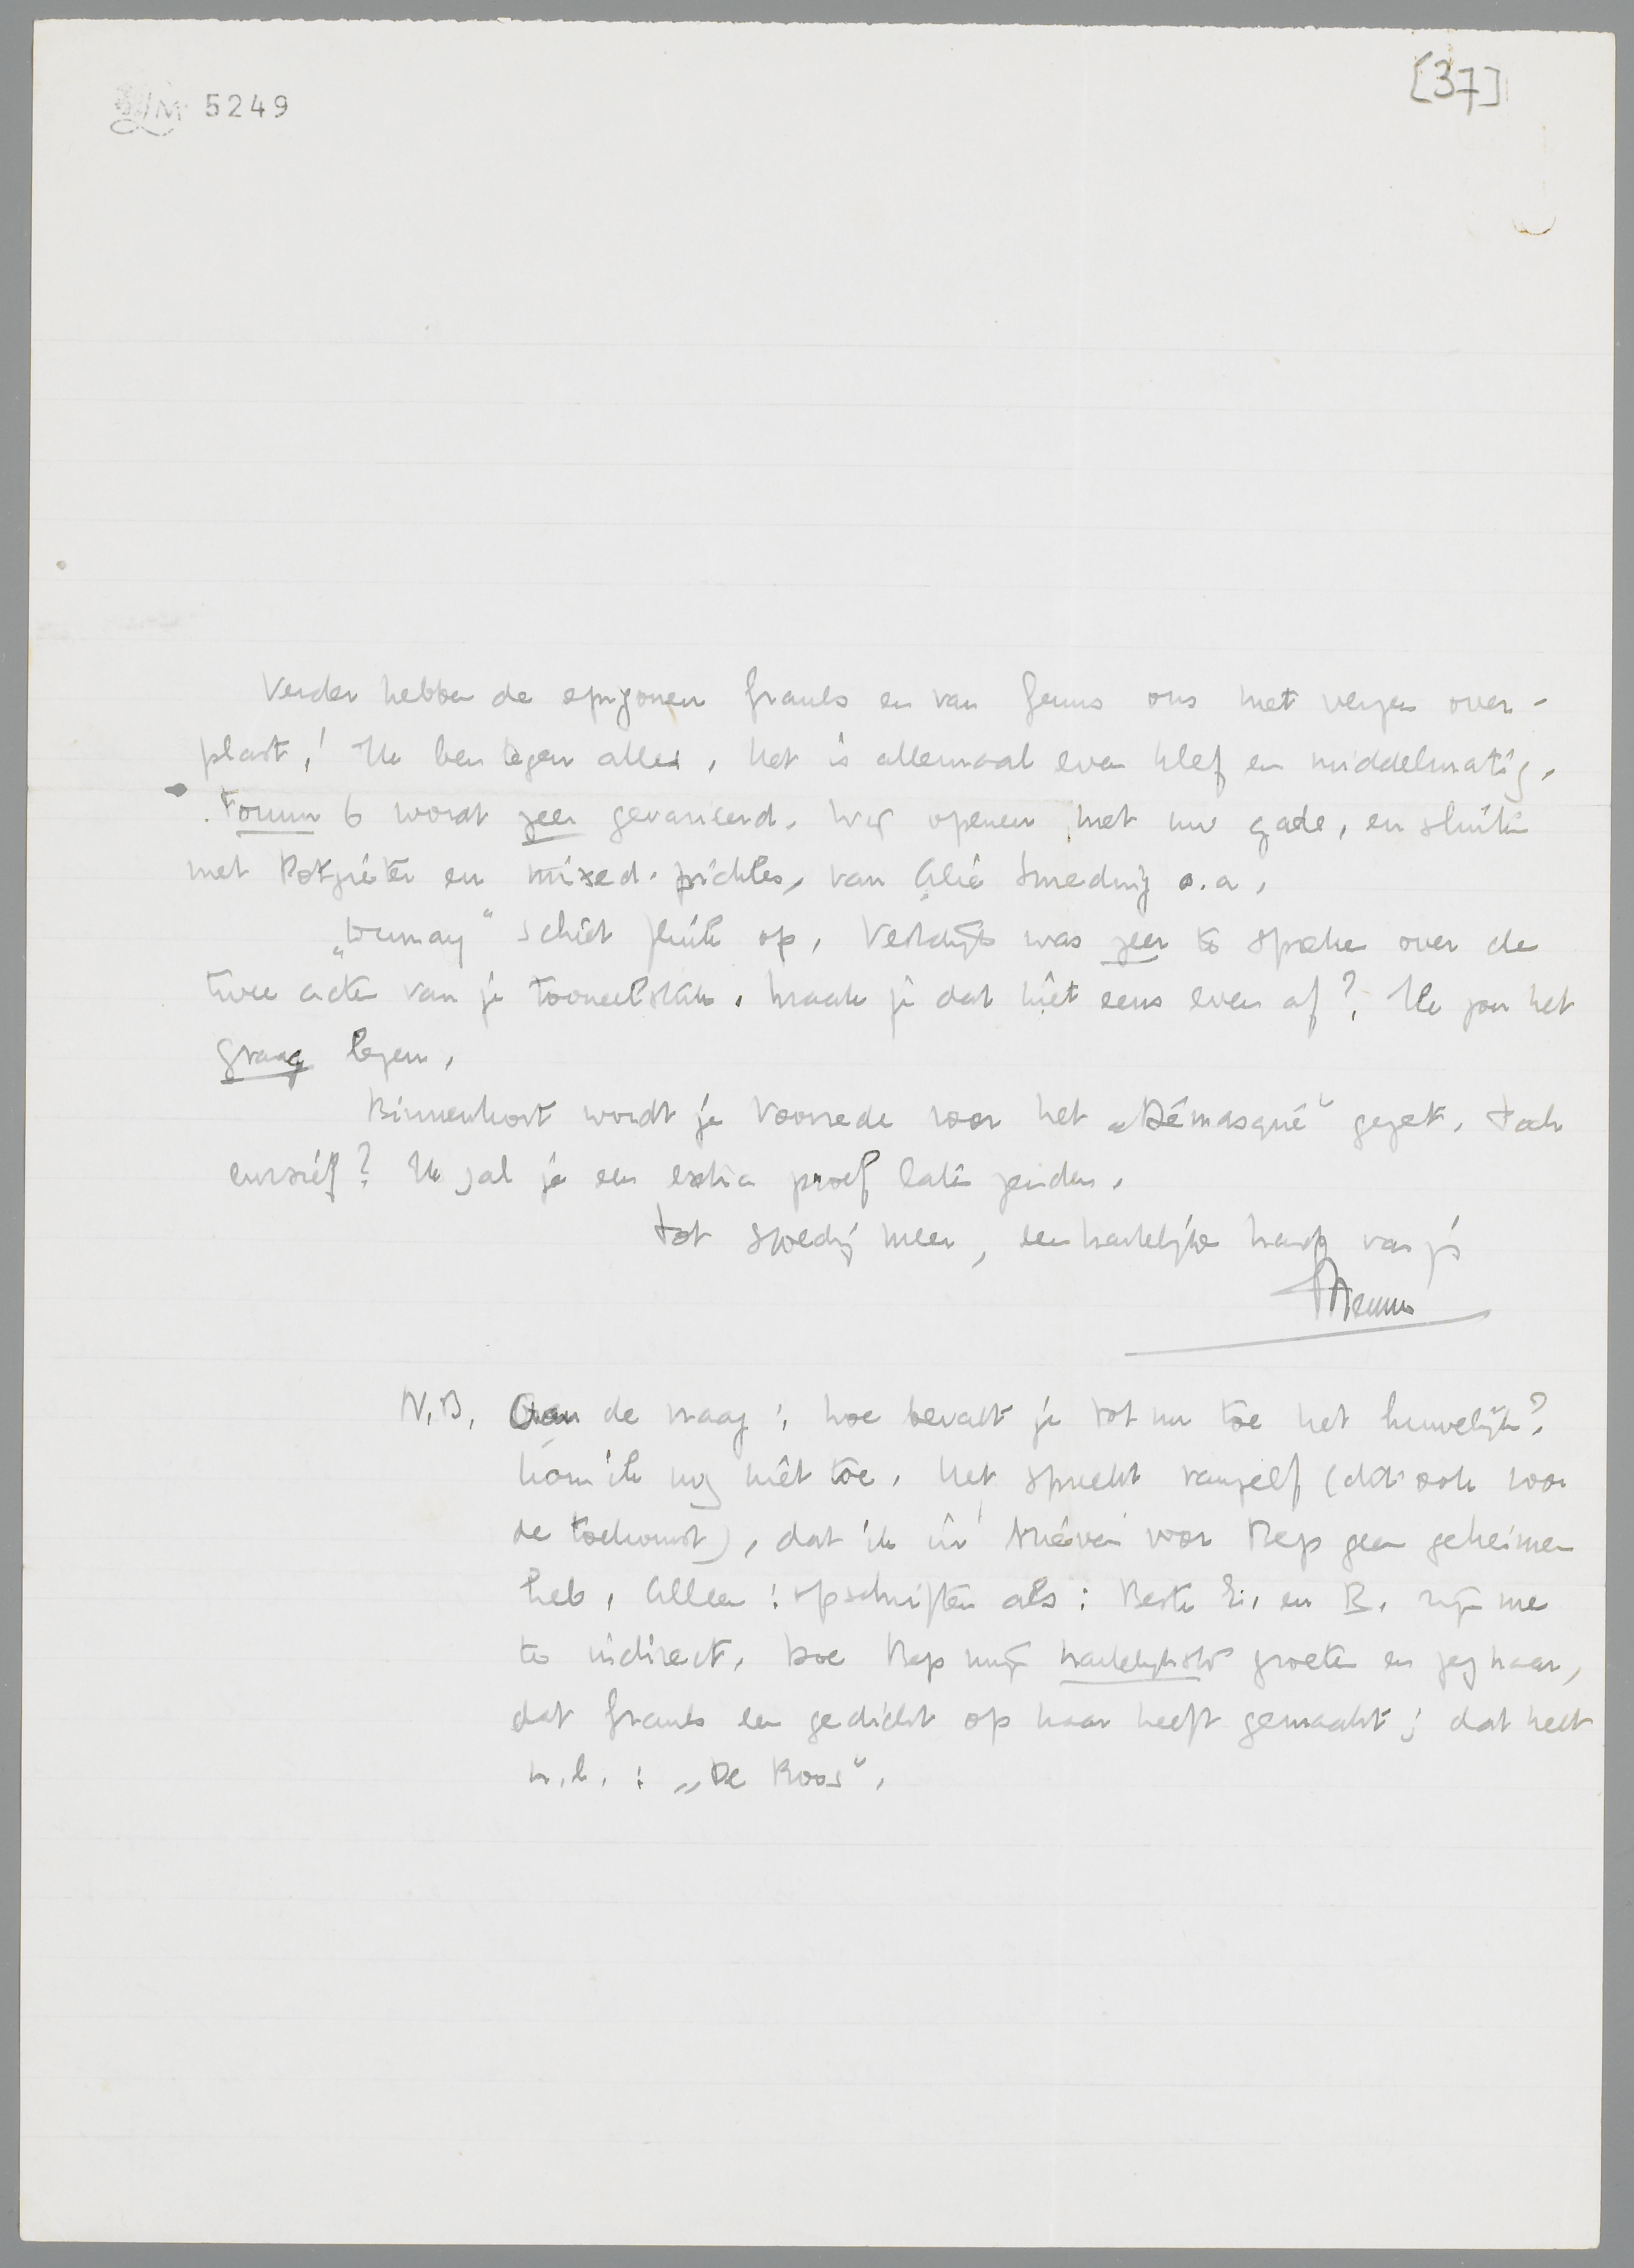 LM 5249
[37]
Verder hebben de epigonen Franls en van Geuns ons met verzen over-
plast! Ik ben tegen alles, het is allemaal even klef en middelmatig.
Forum 6 wordt zeer gevarieerd. Wij openen met uw gade, en sluiten
met Potgieter en mixed-pickles, van Alie Smeding o.a.
„Dumay" schiet flink op. Vestdijk was zeer te spreken over de
twee acten van je tooneelstuk. Maak je dat niet eens even af? Ik zou het
graag lezen.
Binnenkort wordt je Voorrede voor het „Démasqué" gezet. Toch
cursief? Ik zal je een extra proef laten zenden.
Tot spoedig meer, een hartelijke hand van je
Menno
N.B. Aan de vraag: hoe bevalt je tot nu toe het huwelijk?
kom ik nog niet toe. Het spreekt vanzelf (dit ook voor
de toekomst), dat ik in brieven voor Bep geen geheimen
heb. Alleen: opschriften als: Beste E. en B. zijn me
te indirect. Doe Bep mijn hartelijkste groeten en zeg haar,
dat Franls een gedicht op haar heeft gemaakt; dat heet
n.l.: „De Roos".